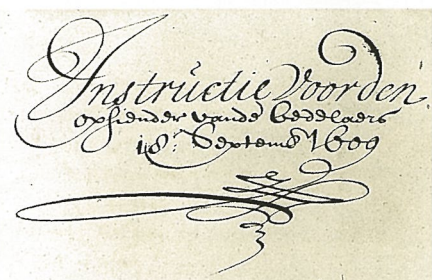 Instructie Voorden
opsiender vande bedelaers
18: Septemb 1609